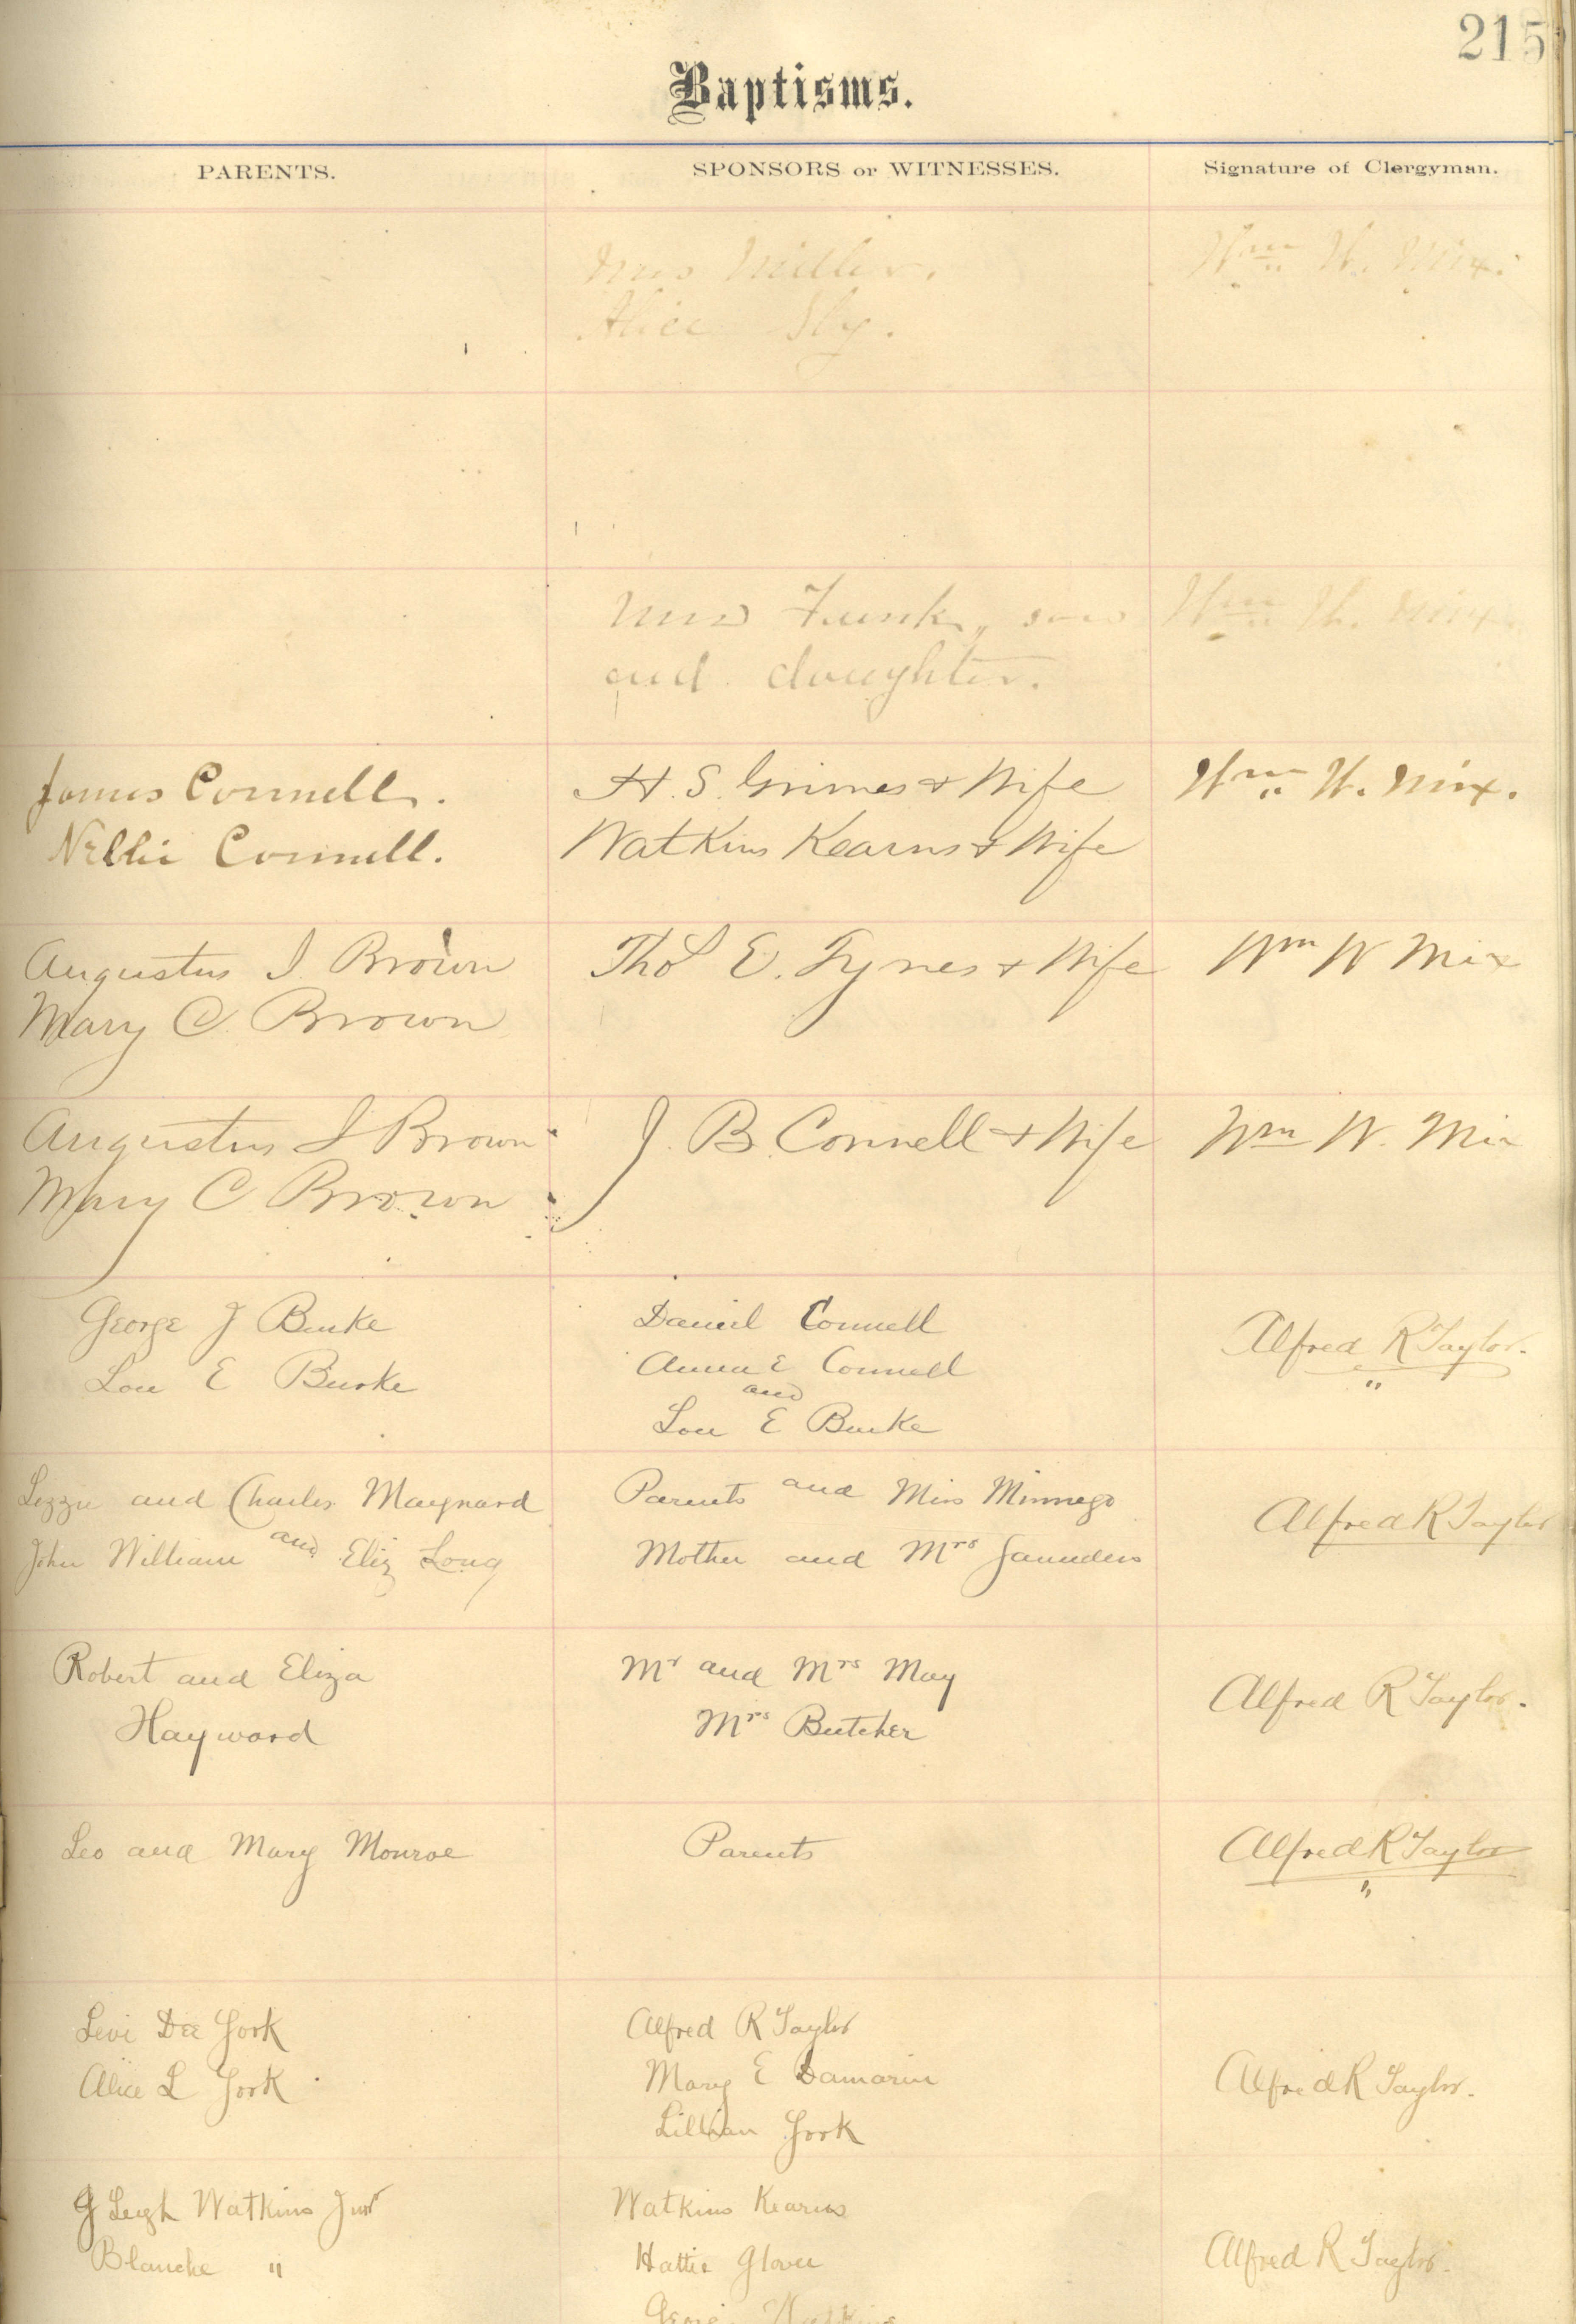 215
Baptisms.
PARENTS. SPONSORS or WITNESSES. Signature of Clergyman.
Mrs Miller. Wm W. Mix.
Alice Sly.
Funk, Wm W. Mix.
and daughter.
James Connell. H. S. Grimes & Wife Wm W. Mix.
Nellie Connell. Watkins Kearns & Wife
Augustus I. Brown Thos E. Tynes & Wife Wm W Mix
Mary C. Brown
Augustus I Brown J. B. Connell & Wife Wm W. Mix
Mary C Brown
George J Burke Daniel Connell Alfred R Taylor.
Lou E Burke Anna E Connell "
and
Lou E Burke
Lizzie and Charles Maynard Parents and Miss Minnego Alfred R Taylor
John William and Eliz Long Mother and Mrs Saunders
Robert and Eliza Mr and Mrs May Alfred R Taylor.
Hayward Mrs Butcher
Leo and Mary Monroe Parents Alfred R Taylor
"
Levi Dee York Alfred R Taylor
Alice L York Mary E Damarin Alfred R Taylor.
Lillian York
G Leigh Watkins Junr Watkins Kearns
Blanche " Hattie Glover Alfred R Taylor.
Watkins